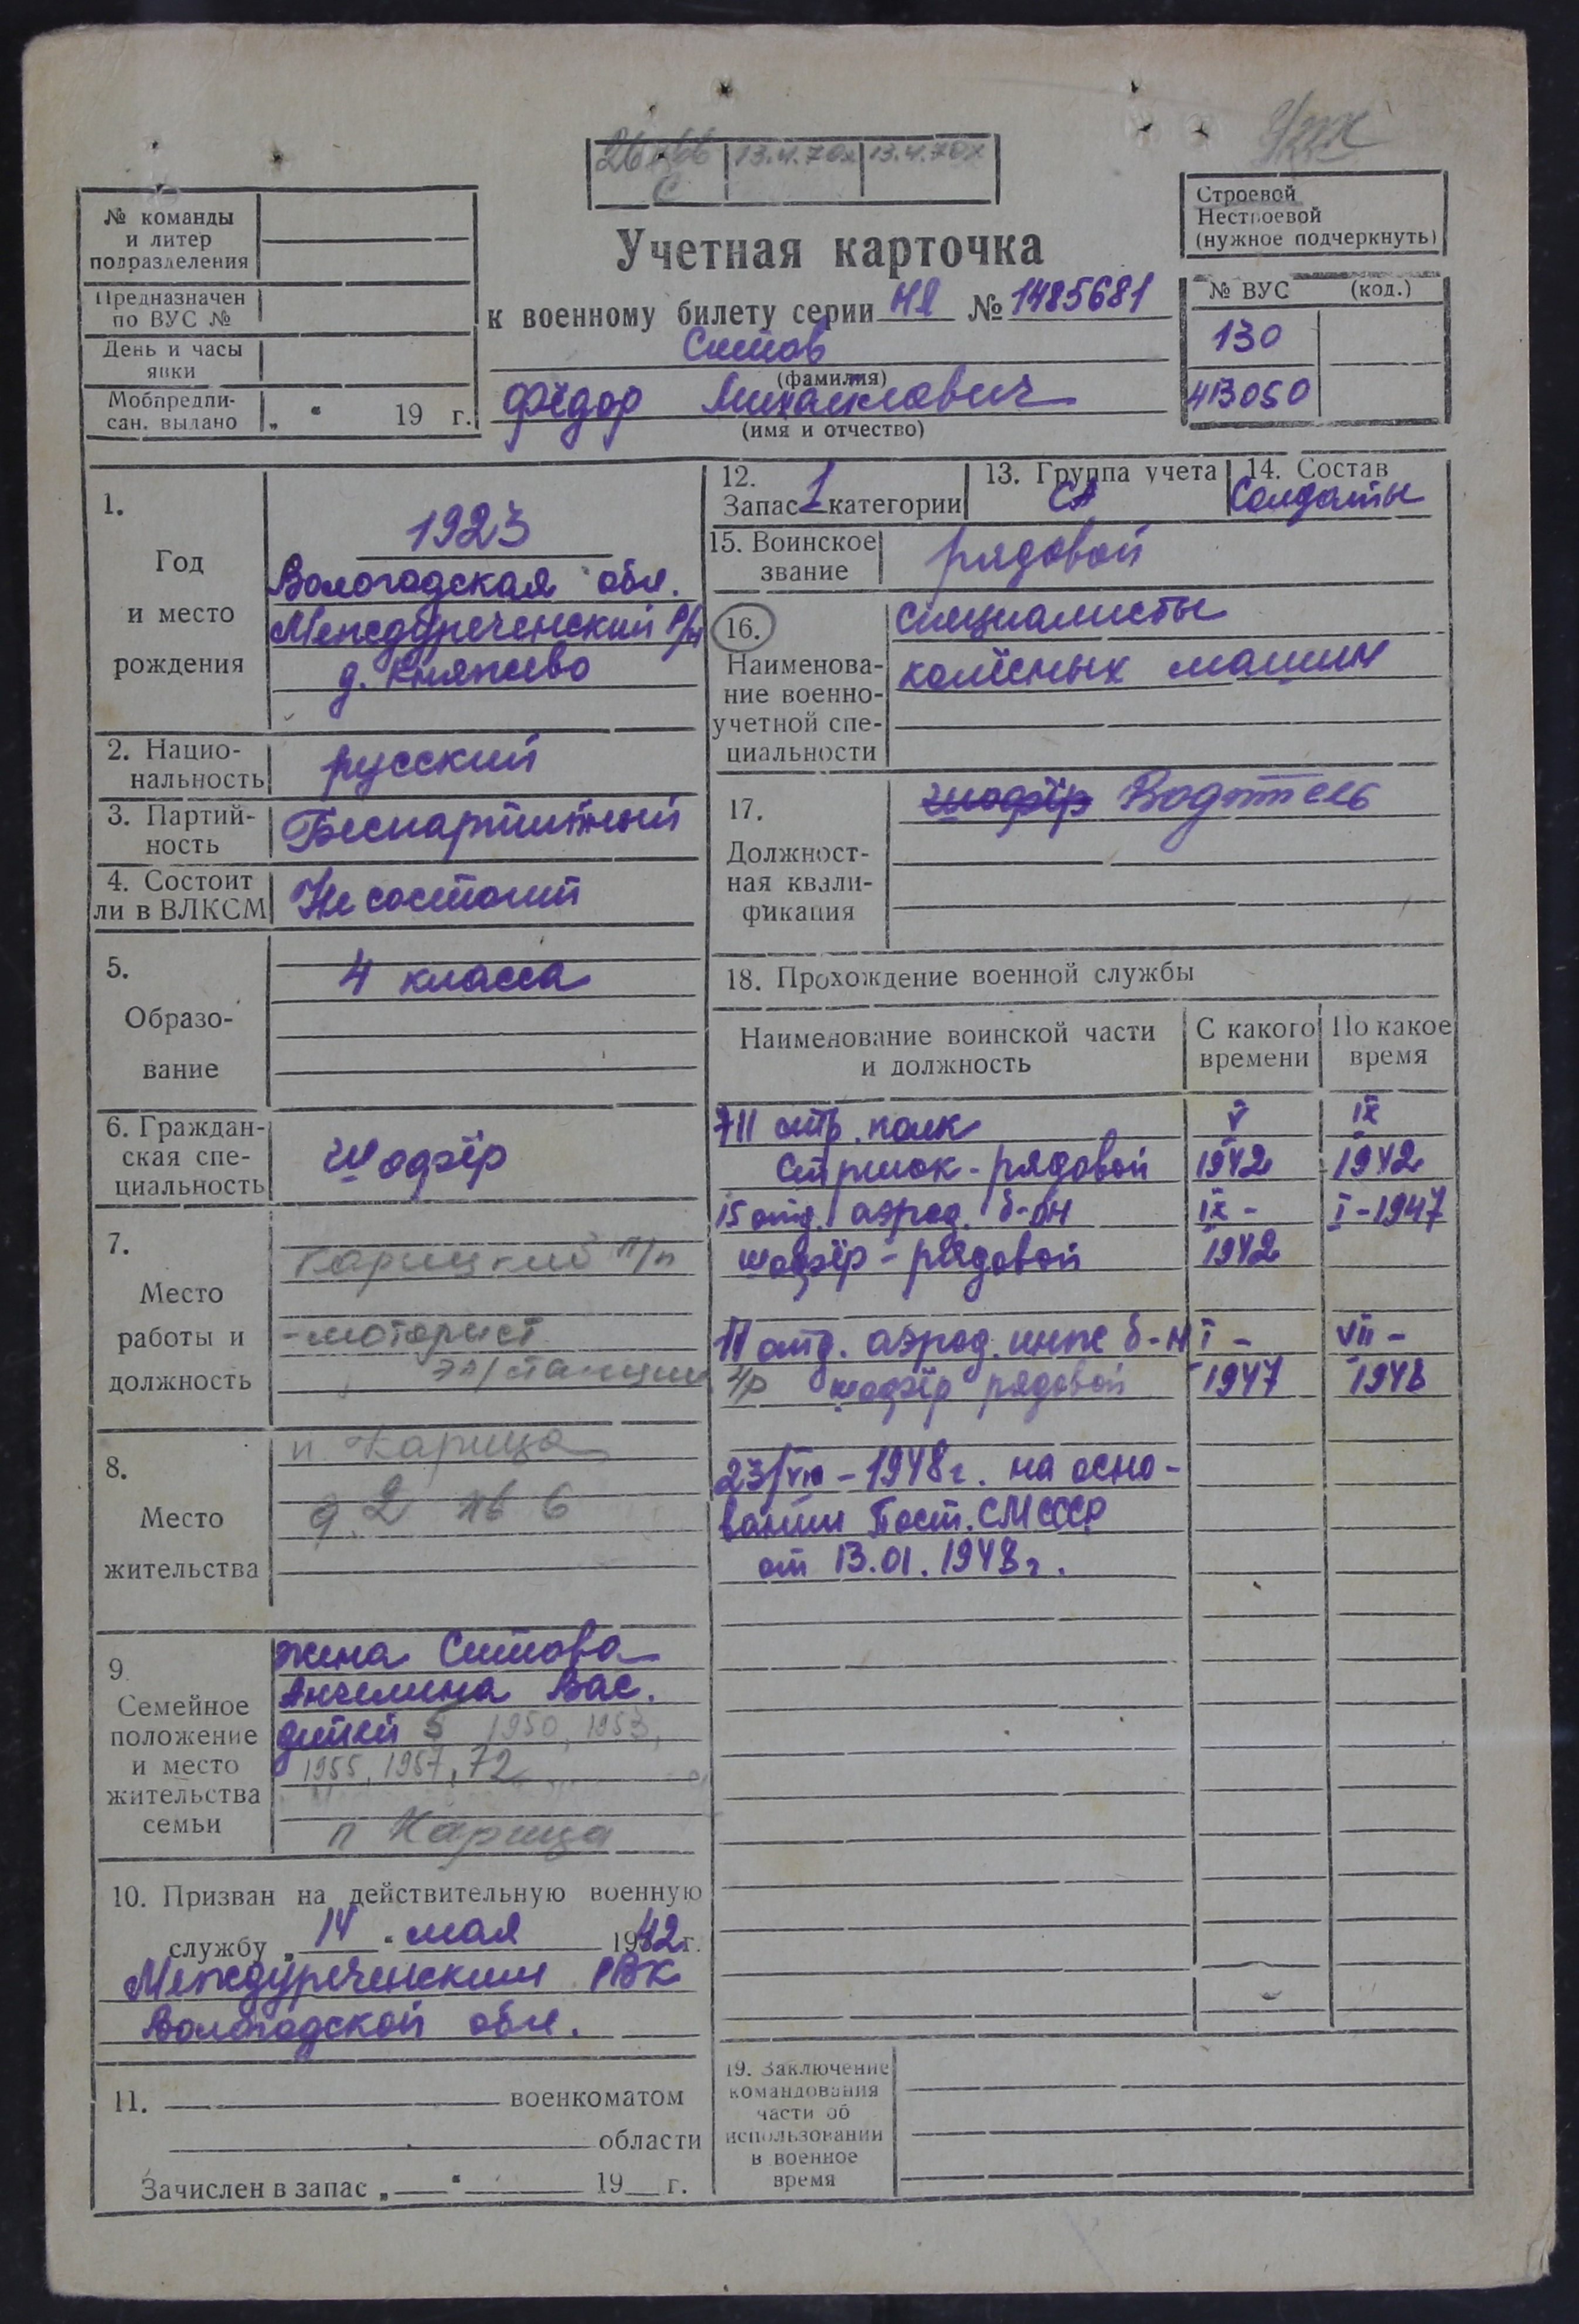 13.4.70х 13.4.70х
С
№ команды
и литер
подразделения
Предназначен
по ВУС №
День и часы
явки
Мобпредпи-
сан. выдано „ “ 19 г.
Учетная карточка
к военному билету серии НЯ № 1485681
Ситов
(фамилия)
Фёдор Михайлович
(имя и отчество)
Строевой
Нестроевой
(нужное подчеркнуть)
№ ВУС (код.)
130
413050
1.
Год
и место
рождения
1923
Вологодская обл.
Междуреченский р/н
д. Княжево
2. Нацио-
нальность
русский
3. Партий-
ность
Беспартийный
4. Состоит
ли в ВЛКСМ
Не состоит
5.
Образо-
вание
4 класса
6. Граждан-
ская спе-
циальность
шофёр
7.
Место
работы и
должность
Карицкий л/п
-моторист
эл/станции
8.
Место
жительства
п. Карица
д. 2 кв 6
9.
Семейное
положение
и место
жительства
семьи
жена Ситова
Ангелина Вас.
детей 5 1950, 1953,
1955, 1957, 72
п Карица
10. Призван на действительную военную
службу „ 14 “ мая 1942 г.
Междуреченским РВК
Вологодской обл.
11. военкоматом
области
Зачислен в запас „ “ 19 г.
12.
Запас 1 категории
13. Группа учета
СА
14. Состав
Солдаты
15. Воинское
звание
рядовой
16.
Наименова-
ние военно-
учетной спе-
циальности
специалисты
колёсных машин
17.
Должност-
ная квали-
фикация
шофёр Водитель
18. Прохождение военной службы
Наименование воинской части
и должность
С какого
времени
По какое
время
711 стр. полк V IX
Стрелок - рядовой 1942 1942
15 отд. аэрод. б-он IX - I-1947
шофёр - рядовой 1942
11 отд. аэрод. инж б-н I - VII -
шофёр рядовой 1947 1948
23/VII - 1948 г. на осно-
вании Пост. СМ СССР
от 13.01.1948 г.
19. Заключение
командования
части об
использовании
в военное
время